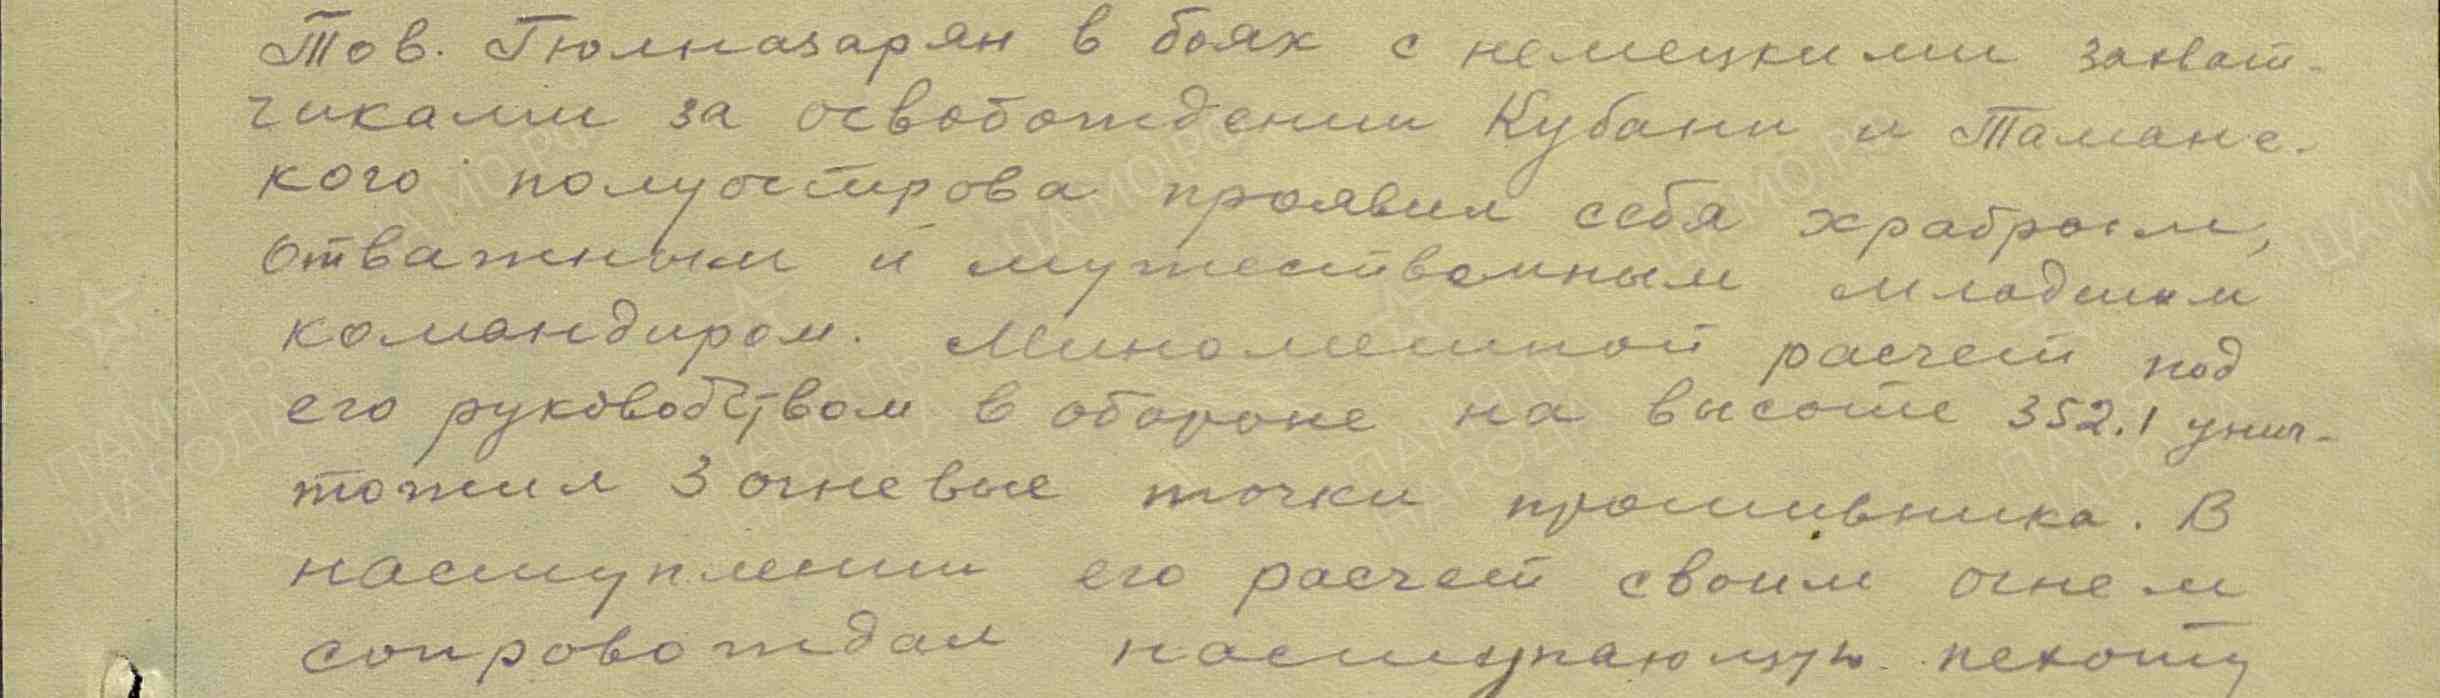 Тов. Гюлназарян в боях с немецкими захват-
чиками за освобождении Кубани и Таманс-
кого полуострова проявил себя храбрым,
отважным и мужественным младшим
командиром. Минометный расчет под
его руководством в обороне на высоте 352.1 унич-
тожил 3 огневые точки противника. В
наступлении его расчет своим огнем
сопровождал наступающую пехоту